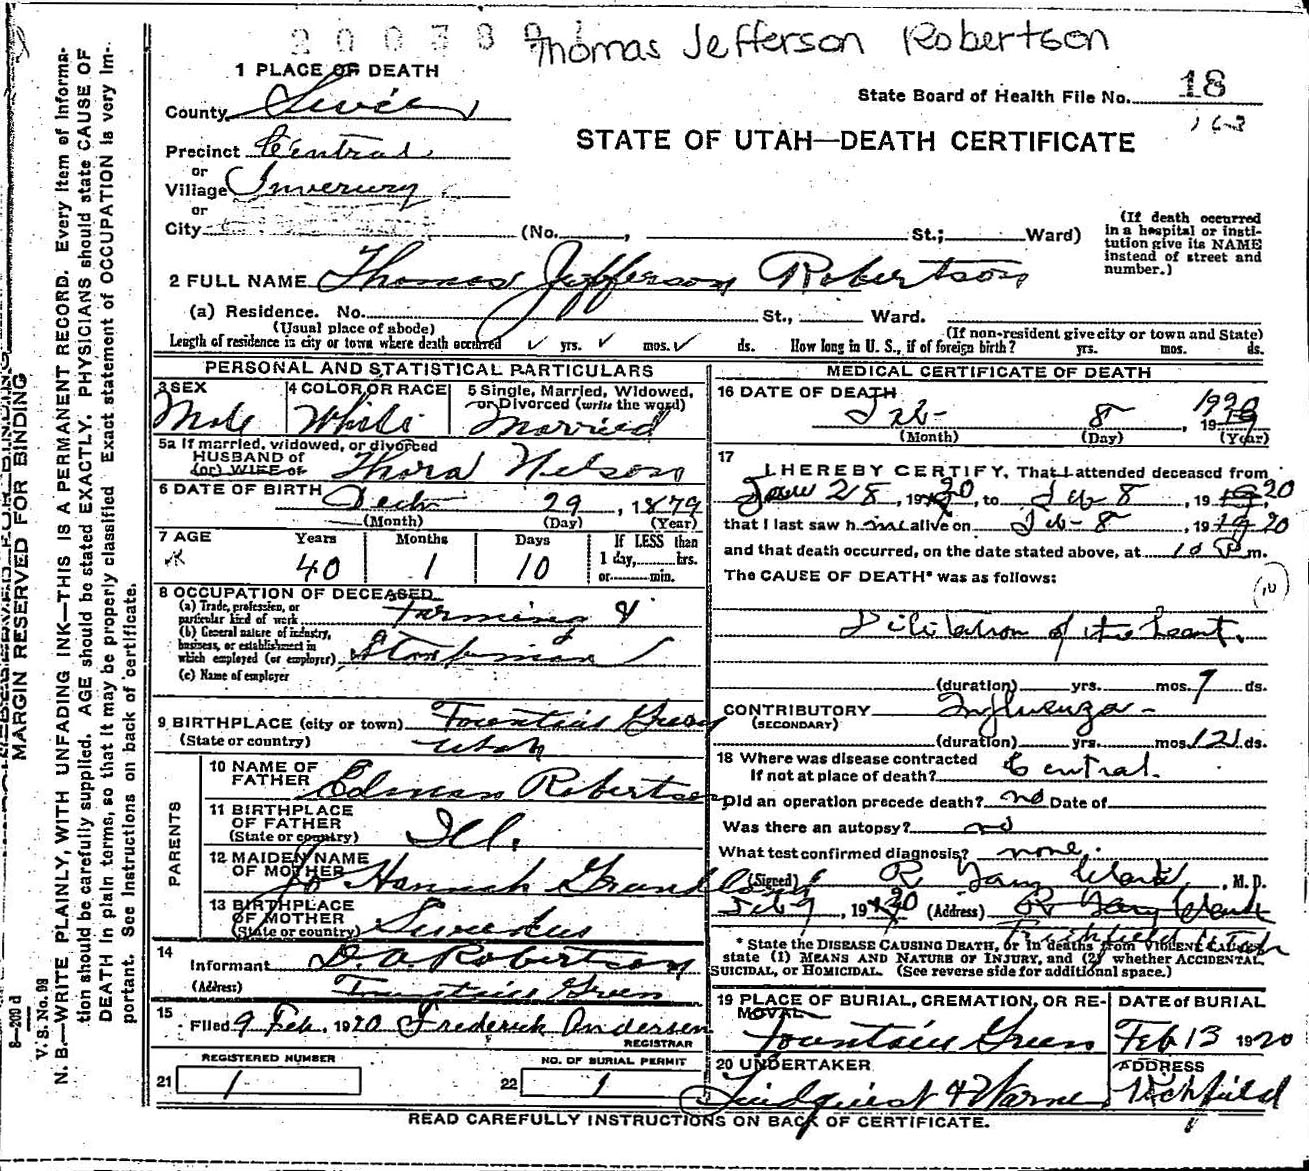 20038
Thomas Jefferson Robertson
1 PLACE OF DEATH
County Sevier
State Board of Health File No. 18
163
STATE OF UTAH—DEATH CERTIFICATE
Precinct Central
or
Village Inverury
or
City (No. , St.; Ward)
(If death occurred in a hospital or institution give its NAME instead of street and number.)
2 FULL NAME Thomas Jefferson Robertson
(a) Residence. No. St., Ward.
(Usual place of abode) (If non-resident give city or town and State)
Length of residence is city or town where death occurred ✓ yrs. ✓ mos. ✓ ds. How long in U. S., if of foreign birth? yrs. mos. ds.
PERSONAL AND STATISTICAL PARTICULARS
3 SEX Male
4 COLOR OR RACE White
5 Single, Married, Widowed, or Divorced (write the word) Married
5a If married, widowed, or divorced
HUSBAND of
(or) WIFE of Thora Nelson
6 DATE OF BIRTH Dec 29, 1879
(Month) (Day) (Year)
7 AGE Years Months Days If LESS than
40 1 10 1 day, hrs.
or min.
8 OCCUPATION OF DECEASED
(a) Trade, profession, or particular kind of work Farming &
(b) General nature of industry, business, or establishment in which employed (or employer) Stockman
(c) Name of employer
9 BIRTHPLACE (city or town) Fountain Green
(State or country) Utah
PARENTS
10 NAME OF FATHER Edman Robertson
11 BIRTHPLACE OF FATHER (State or country) Ill.
12 MAIDEN NAME OF MOTHER Jo Hannah
13 BIRTHPLACE OF MOTHER (State or country)
14 Informant D. A. Robertson
(Address) Fountain Green
15 Filed 9 Feb. 1920 Frederick Andersen
REGISTRAR
REGISTERED NUMBER NO. OF BURIAL PERMIT
21 1 22 1
MEDICAL CERTIFICATE OF DEATH
16 DATE OF DEATH Feb- 8 1920
(Month) (Day) (Year)
17 I HEREBY CERTIFY, That I attended deceased from
Jan 28, 1920, to Feb 8, 1920
that I last saw him alive on Feb- 8, 1920
and that death occurred, on the date stated above, at 10 P m.
The CAUSE OF DEATH* was as follows:
Dilitation of the heart.
(duration) yrs. mos. 9 ds.
CONTRIBUTORY Influenza-
(SECONDARY)
(duration) yrs. mos. 12 ds.
18 Where was disease contracted
if not at place of death? Central.
Did an operation precede death? no Date of
Was there an autopsy? no
What test confirmed diagnosis? none.
(Signed) R. , M. D.
Feb 9, 1920 (Address) R.
Richfield Utah
* State the DISEASE CAUSING DEATH, or in deaths from VIOLENT CAUSES, state (1) MEANS AND NATURE OF INJURY, and (2) whether ACCIDENTAL, SUICIDAL, or HOMICIDAL. (See reverse side for additional space.)
19 PLACE OF BURIAL, CREMATION, OR REMOVAL Fountain Green
DATE of BURIAL Feb 13 1920
20 UNDERTAKER Lindquist & Warne
ADDRESS Richfield
READ CAREFULLY INSTRUCTIONS ON BACK OF CERTIFICATE.
MARGIN RESERVED FOR BINDING
N. B.—WRITE PLAINLY, WITH UNFADING INK—THIS IS A PERMANENT RECORD. Every item of information should be carefully supplied. AGE should be stated EXACTLY. PHYSICIANS should state CAUSE OF DEATH in plain terms, so that it may be properly classified. Exact statement of OCCUPATION is very important. See instructions on back of certificate.
V. S. No. 98
8—209 d